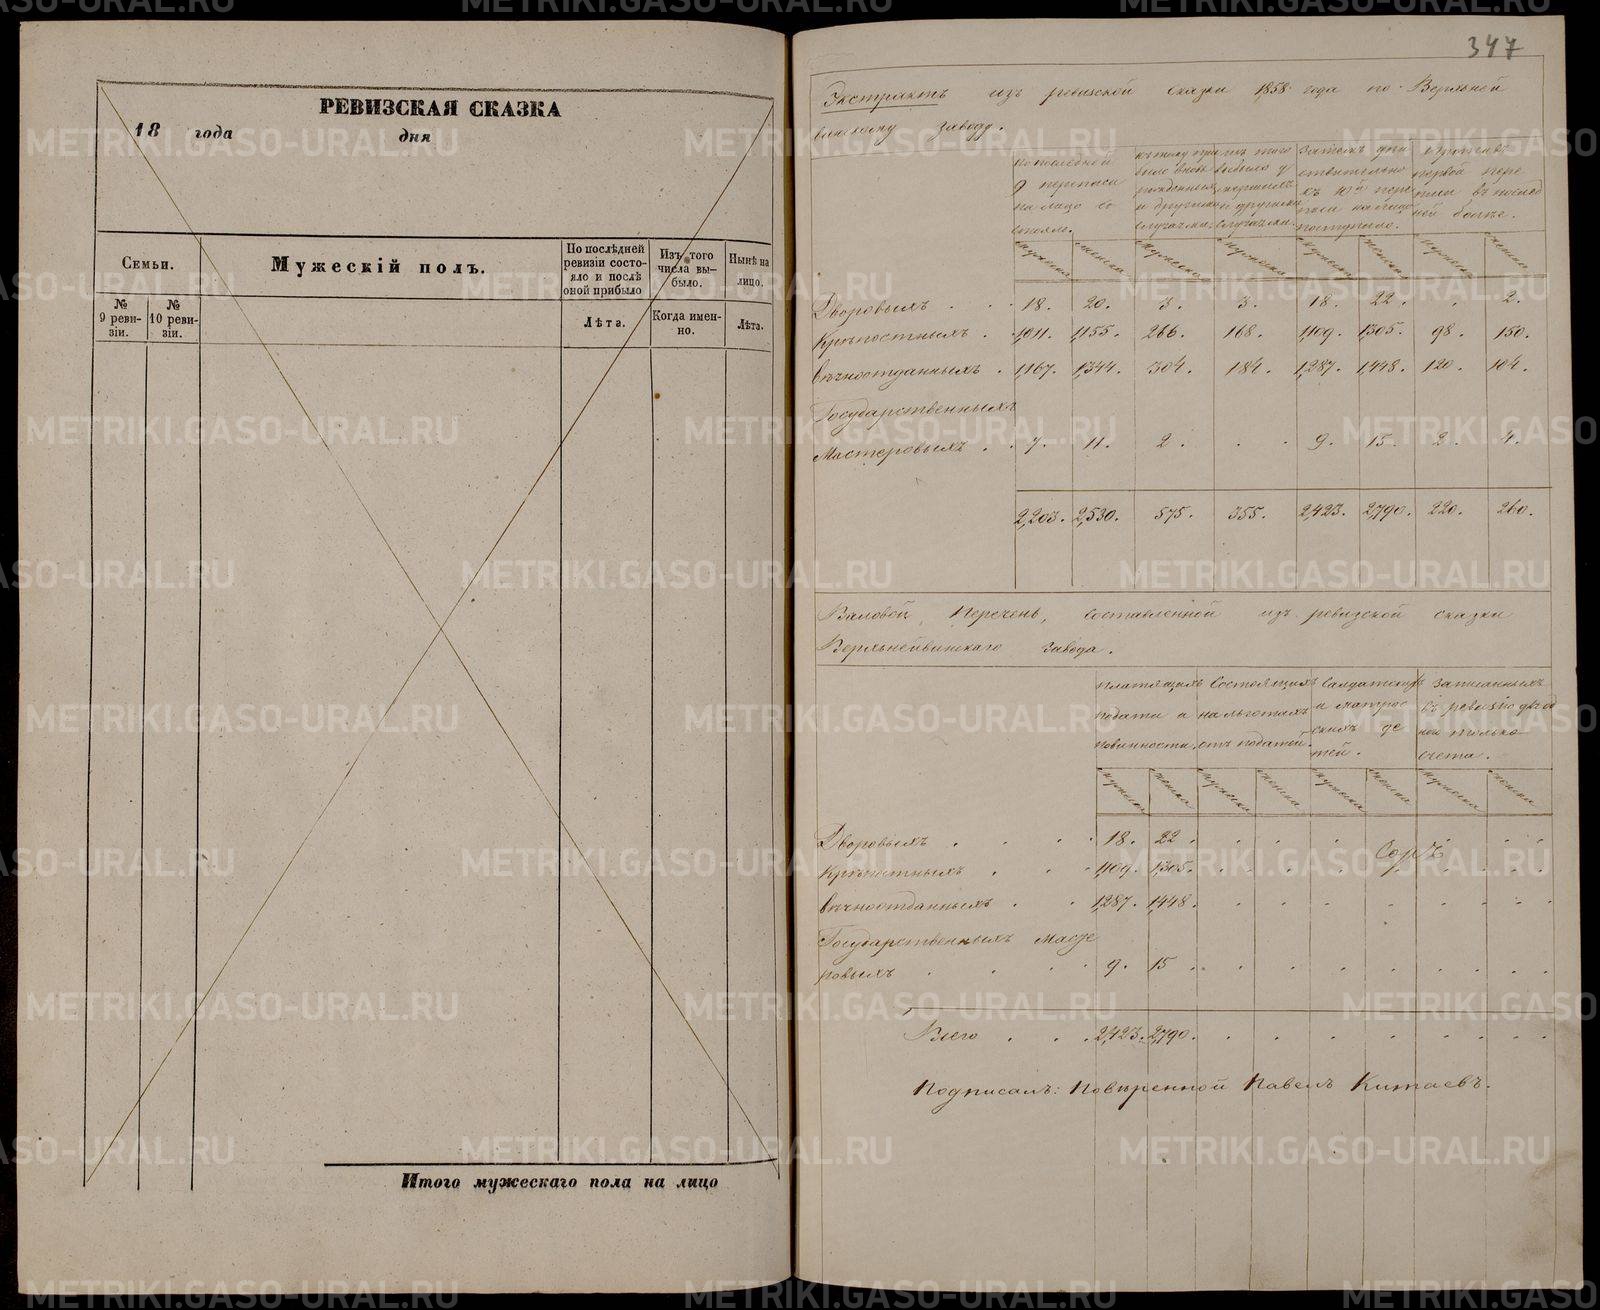 РЕВИЗСКАЯ СКАЗКА
18 года дня
Семьи.
№ 9 реви-зіи.
№ 10 реви-зіи.
Мужескій полъ.
По послѣдней
ревизіи состо-
яло и послѣ
оной прибыло
Лѣта.
Изъ того
числа вы-
было.
Когда имен-
но.
Нынѣ на
лицо.
Лѣта.
Итого мужескаго пола на лицо
347
Экстрактъ изъ ревизской сказки 1858 года по Верхней
винскому заводу.
по последней
9 переписи
на лицо со
стояло.
къ тому при
было вновь
рожденныхъ
и другими
случаями
изъ того
выбыло у
мершихъ
и другими
случаями.
За тѣмъ дѣй
ствительно
къ 10й пере
писи на лицо
поступило.
Противъ
первой пере
писи въ послед
ней болѣе.
мужеска женска мужеска мужеска мужеска женска мужеска женска
Дворовыхъ . . . 18. 20. 3. 3. 18. 22. . 2.
Крѣпостныхъ . 1,011. 1,155. 266. 168. 1,109. 1,305. 98. 150.
вѣчноотданныхъ . 1,167. 1,344. 304. 184. 1,287. 1,448. 120. 104.
Государственныхъ
Мастеровыхъ . . 7. 11. 2. . . 9. 15. 2. 4.
2,203. 2,530. 575. 355. 2,423. 2,790. 220. 260.
Валовой Перечень, составленной изъ ревизской сказки
Верхнейвинскаго завода.
платящихъ
подати и
повинности
Состоящихъ
на льготахъ
отъ податей.
Салдатскихъ
и матрос
скихъ де
тей.
Записанныхъ
въ ревизію для од
ного только
счета.
мужеска женска мужеска женска мужеска женска мужеска женска
Дворовыхъ . . . 18. 22 . . . . . . .
Крѣпостныхъ . . . 1,109. 1,305. . . . . . .
вѣчноотданныхъ . . 1,287. 1,448. . . . . . .
Государственныхъ масте
ровыхъ . . . . 9. 15 . . . . . . .
Всего . . . 2,423. 2,790. . . . . . .
Подписалъ: Повѣренной Павелъ Китаевъ.
METRIKI.GASO-URAL.RU